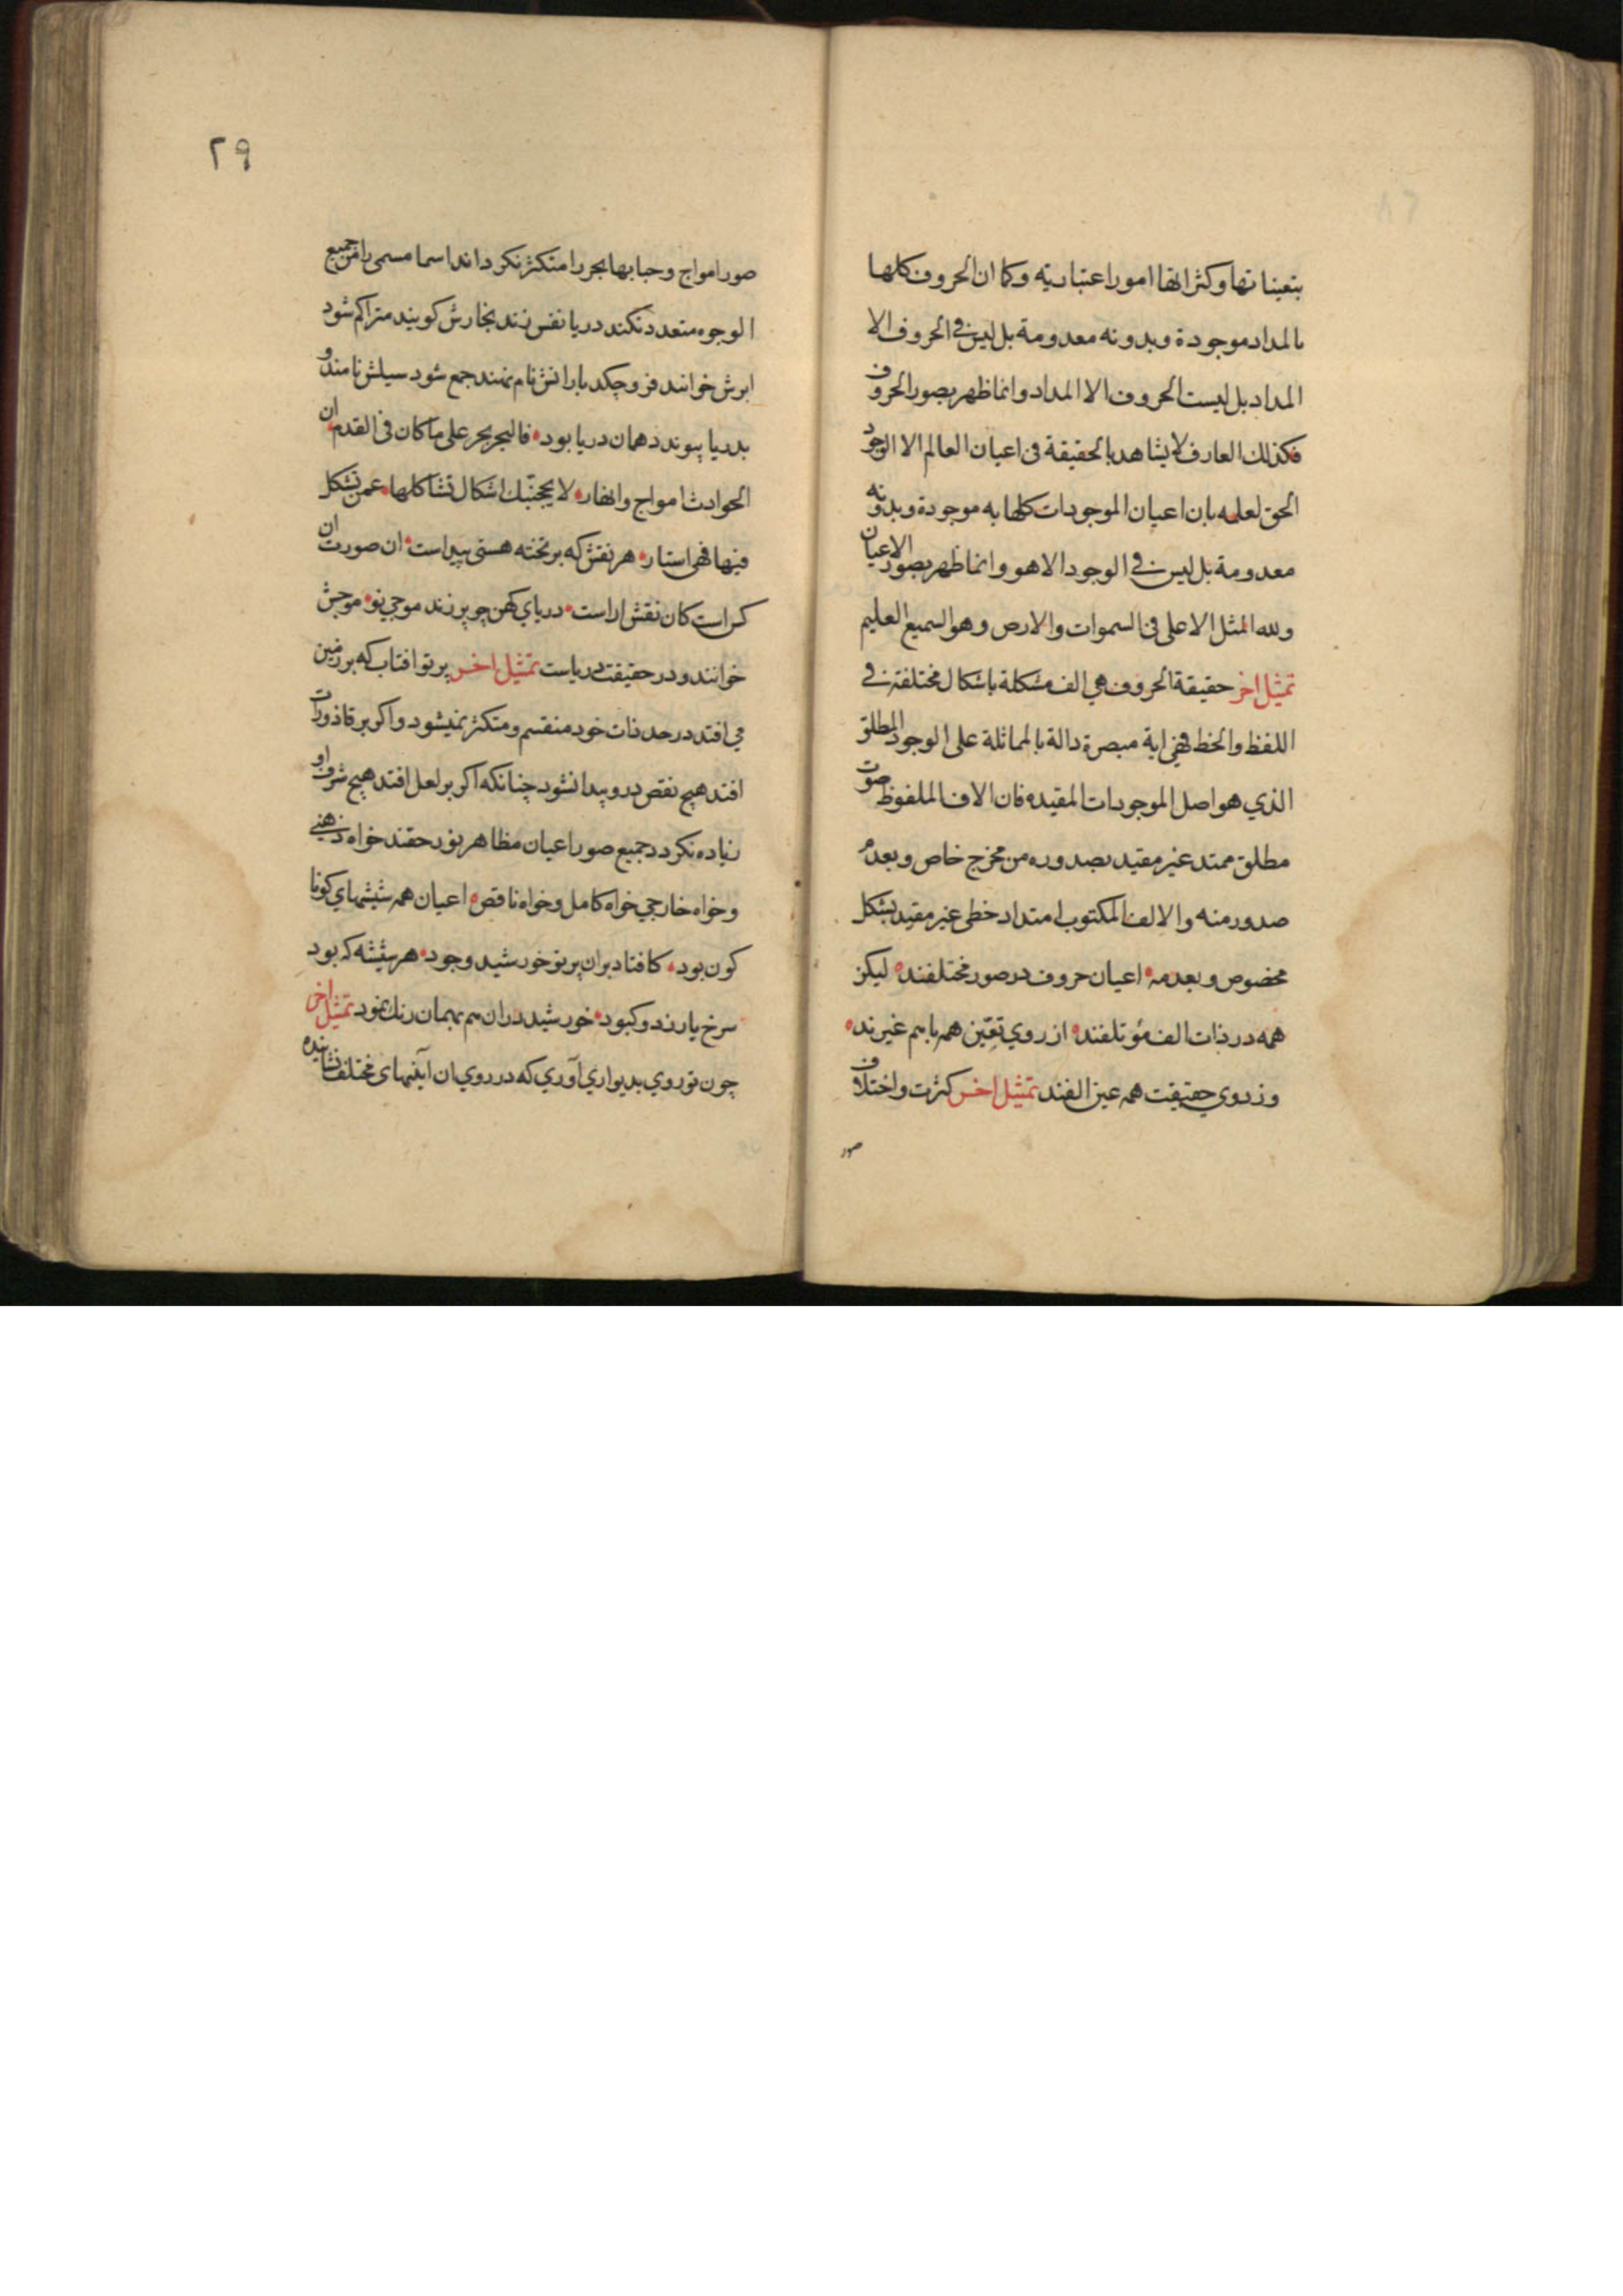 بتعیناتها وکثراتها امور اعتباریه وکما ان الحروف کلها
بالمداد موجودة وبدونه معدومة بل لیس فی الحروف الا
المداد بل لیست الحروف الا المداد وانما ظهر بصور الحروف
فکذلك العارف لا یشاهد بالحقیقة فی اعیان العالم الا الوجود
الحق لعلمه بان اعیان الموجودات کلها به موجودة وبدونه
معدومة بل لیس فی الوجود الا هو وانما ظهر بصور الاعیان
ولله المثل الاعلی فی السموات والارض وهو السمیع العلیم
تمثیل اخر حقیقة الحروف هی الف مشکلة باشکال مختلفة فی
اللفظ والخط فهی ایة مبصرة دالة بالمماثلة علی الوجود المطلق
الذي هو اصل الموجودات المقیده فان الالف الملفوظ صوت
مطلق ممتد غیر مقید بصدوره من مخرج خاص وبعدم
صدور منه والالف المکتوب امتداد خطی غیر مقید بشکل
مخصوص وبعدمه اعیان حروف در صور مختلفند لیکن
همه در ذات الف مؤتلفند از روي تعین همه باهم غیرند
وز روي حقیقت همه عین الفند تمثیل اخر کثرت واختلاف
صور
۲۹
صور امواج وحبابها بحر را متکثر نکرداند اسما مسمی را من جمیع
الوجوه متعدد نکند دریا نفس زند بخارش کویند متراکم شود
ابرش خوانند فرو چکد بارانش نام نهند جمع شود سیلش نامند و
بدریا پیوندد همان دریا بود فالبحر بحر علی ما کان فی القدم ان
الحوادث امواج وانهار لا یحجبنك اشکال تشاکلها عمن تشکل
فیها فهی استار هر نقش که بر تخته هستی پیداست ان صورت ان
کس است کان نقش اراست دریاي کهن چو بر زند موجي نو موجش
خوانند ودر حقیقت دریاست تمثیل اخر پرتو افتاب که بر زمین
می افتد در حد ذات خود منقسم ومتکثر نمیشود واکر بر قاذورات
افتد هیچ نقص درو پیدا نشود چنانکه اکر بر لعل افتد هیچ شرف او
زیاده نکردد جمیع صور اعیان مظاهر نور حقند خواه ذهنی
وخواه خارجي خواه کامل وخواه ناقص اعیان همه شیشهاي کوناکون
بود کافتاد بران پرتو خورشید وجود هر شیشه که بود
سرخ یا زرد وکبود خورشید دران هم بهمان رنك نمود تمثیل اخر
چون تو روي بدیواري آوري که در روي ان آینهاي مختلف نشانیده